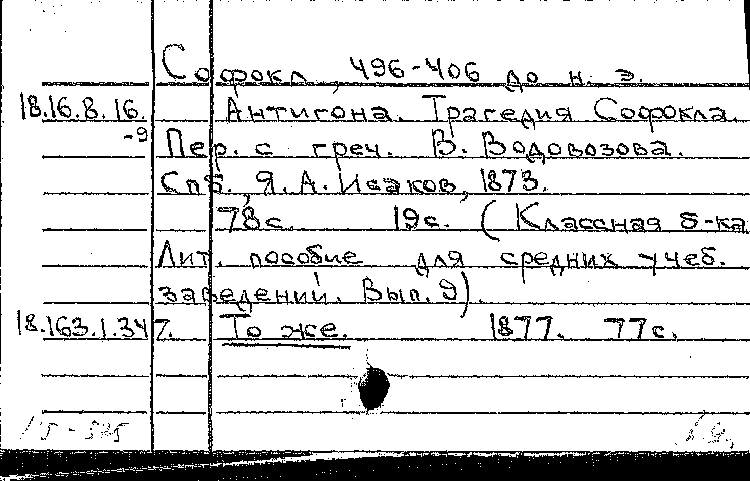 Софокл, 496-406 до н. э.
18.16.8.16. Антигона. Трагедия Софокла.
-9 Пер. с греч. В. Водовозова.
Спб., Я. А. Исаков, 1873.
78с. 19с. (Классная б-ка
Лит. пособие для средних учеб.
заведений. Вып. 9).
18.163.1.347. То же. 1877. 77с.
15-525